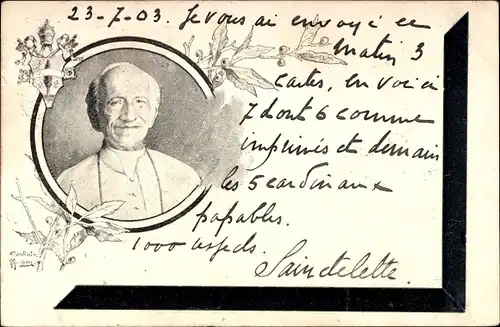 23-7-03. Je vous ai envoyé ce
matin 3
cartes, en voici
7 dont 6 comme
imprimés et demain
les 5 cardinaux
papables.
1000
Saintelette.